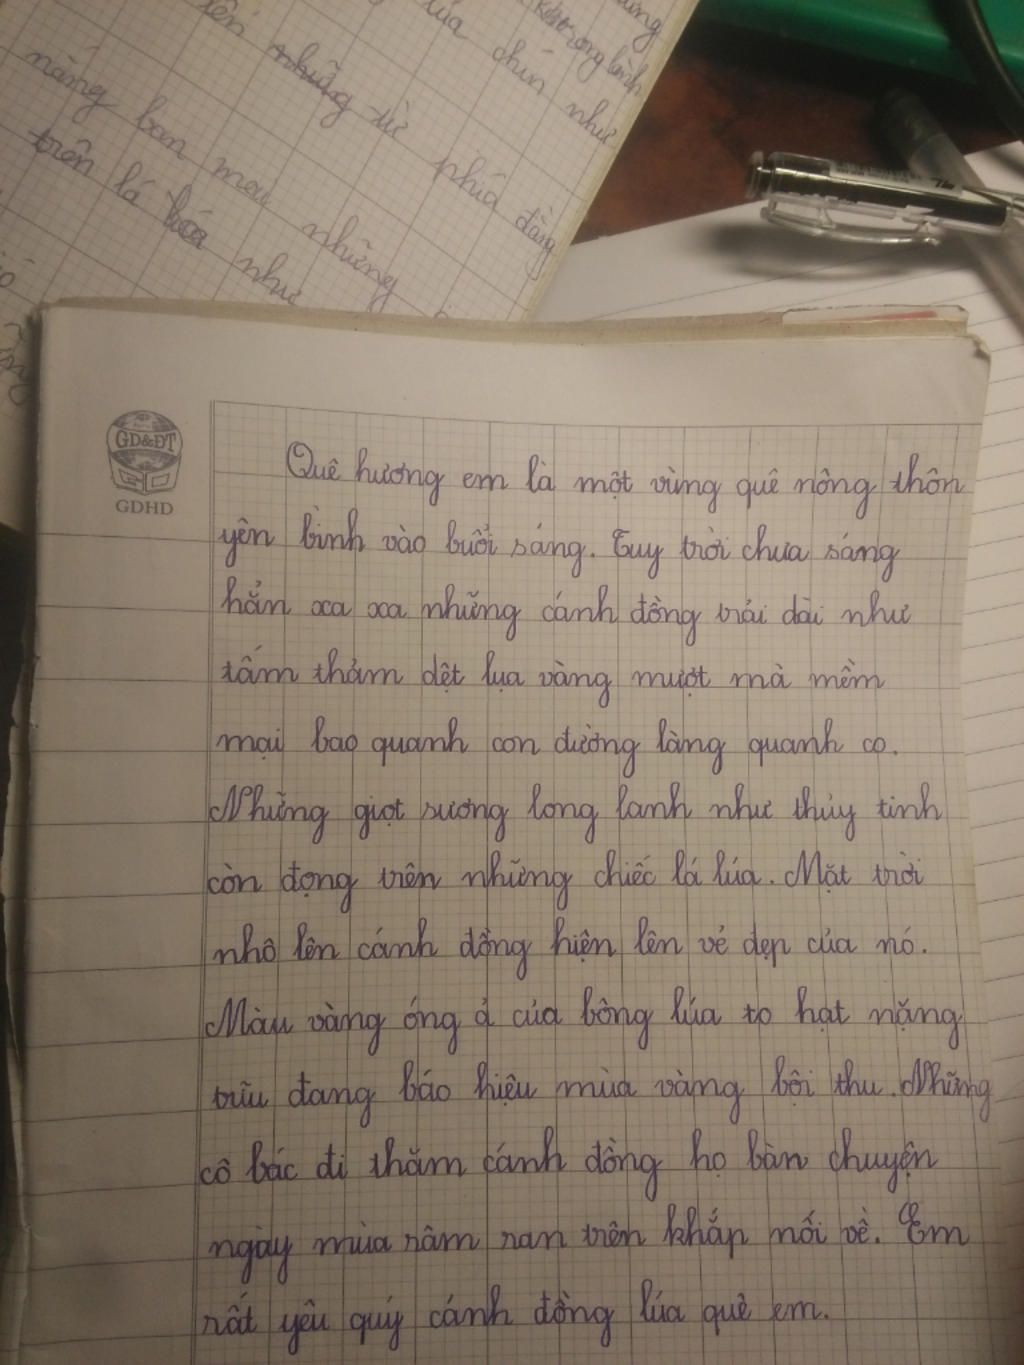 lúa chín như
những từ phía đằng
nắng ban mai những
trên lá lúa như
GD&ĐT
GDHD
Quê hương em là một vùng quê nông thôn
yên bình vào buổi sáng. Tuy trời chưa sáng
hẳn xa xa những cánh đồng trải dài như
tấm thảm dệt lụa vàng mượt mà mềm
mại bao quanh con đường làng quanh co.
Những giọt sương long lanh như thủy tinh
còn đọng trên những chiếc lá lúa. Mặt trời
nhô lên cánh đồng hiện lên vẻ đẹp của nó.
Màu vàng óng ả của bông lúa to hạt nặng
trĩu đang báo hiệu mùa vàng bội thu. Những
cô bác đi thăm cánh đồng họ bàn chuyện
ngày mùa râm ran trên khắp mối về. Em
rất yêu quý cánh đồng lúa quê em.